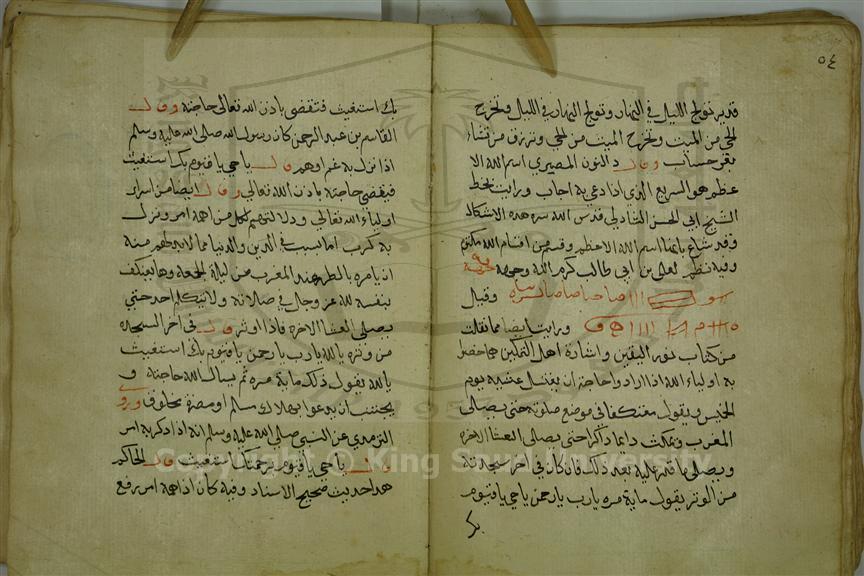 ٥٤
قدير تولج الليل في النهار وتولج النهار في الليل وتخرج
الحي من الميت وتخرج الميت من الحي وترزق من تشاء
بغير حساب وقال ذ النون المصري اسم الله الا
عظم هو السريع الذي اذا دعي به اجاب ورايت بخط
الشيخ ابي الحسن الشاذلي قدس الله سره هذه الاشكال
وقد شاع بانها اسم الله الاعظم وقسم من اقسام الله
وفيه نظم لعلي بن ابي طالب كرم الله وجهه
وقيل
ورايت ايضا مما نقلت
من كتاب نور اليقين واشارة اهل التمكين
به اولياء الله اذا ارادوا حاجة ان يغتسل عشية يوم
الخميس ويقول معتكفا في موضع صلوته حتى يصلي
المغرب ويمكث داعيا ذاكرا حتى يصلي العشا الاخرة
ويصلي ما قدر عليه بعد ذلك فان كان في اخر سجدة
من الوتر يقول ماية مرة يارب يارحمن ياحي ياقيوم
بك
بك استغيث فتقضى باذن الله تعالى حاجته وقال
القاسم بن عبد الرحمن كان رسول الله صلى الله عليه وسلم
اذا نزل به غم او هم قال ياحي ياقيوم بك استغيث
فيقضى حاجته باذن الله تعالى وقال ايضا من اسرار
اولياء الله تعالى ودلالتهم لكل من اهمه امر ونزل
به كرب اما لسبب في الدين والدنيا مما لابد لهم منه
ان يامره بالطهر عند المغرب من ليلة الجمعة وها يعتكف
بنفسه لله عز وجل في صلاته ولا يتكلم احد حتى
يصلي العشا الاخرة فاذا اوتر قال في اخر السجدة
من وتره يا الله يارب يارحمن ياقيوم بك استغيث
يالله يقول ذلك ماية مرة ثم يسال الله حاجته و
يجتنب ان يدعوا بهلاك مسلم او مضرة مخلوق وروى
الترمذي عن النبي صلى الله عليه وسلم انه اذا ذكر به امر
قال ياحي ياقيوم برحمتك استغيث قال الحاكم
هذا حديث صحيح الاسناد وفيه كان اذا همه امر يرفع
Copyright © King Saud University